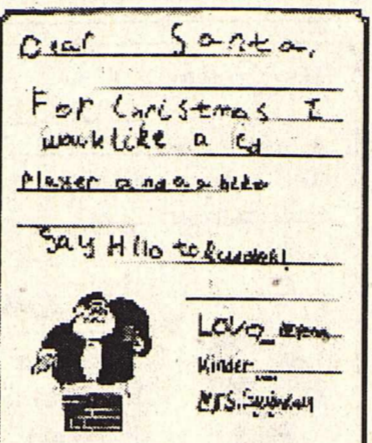 Dear Santa,
For Christmas I
would like a cd
Player and a a bike
Say Hllo to Rudolph!
Love
Kinder
Mrs.